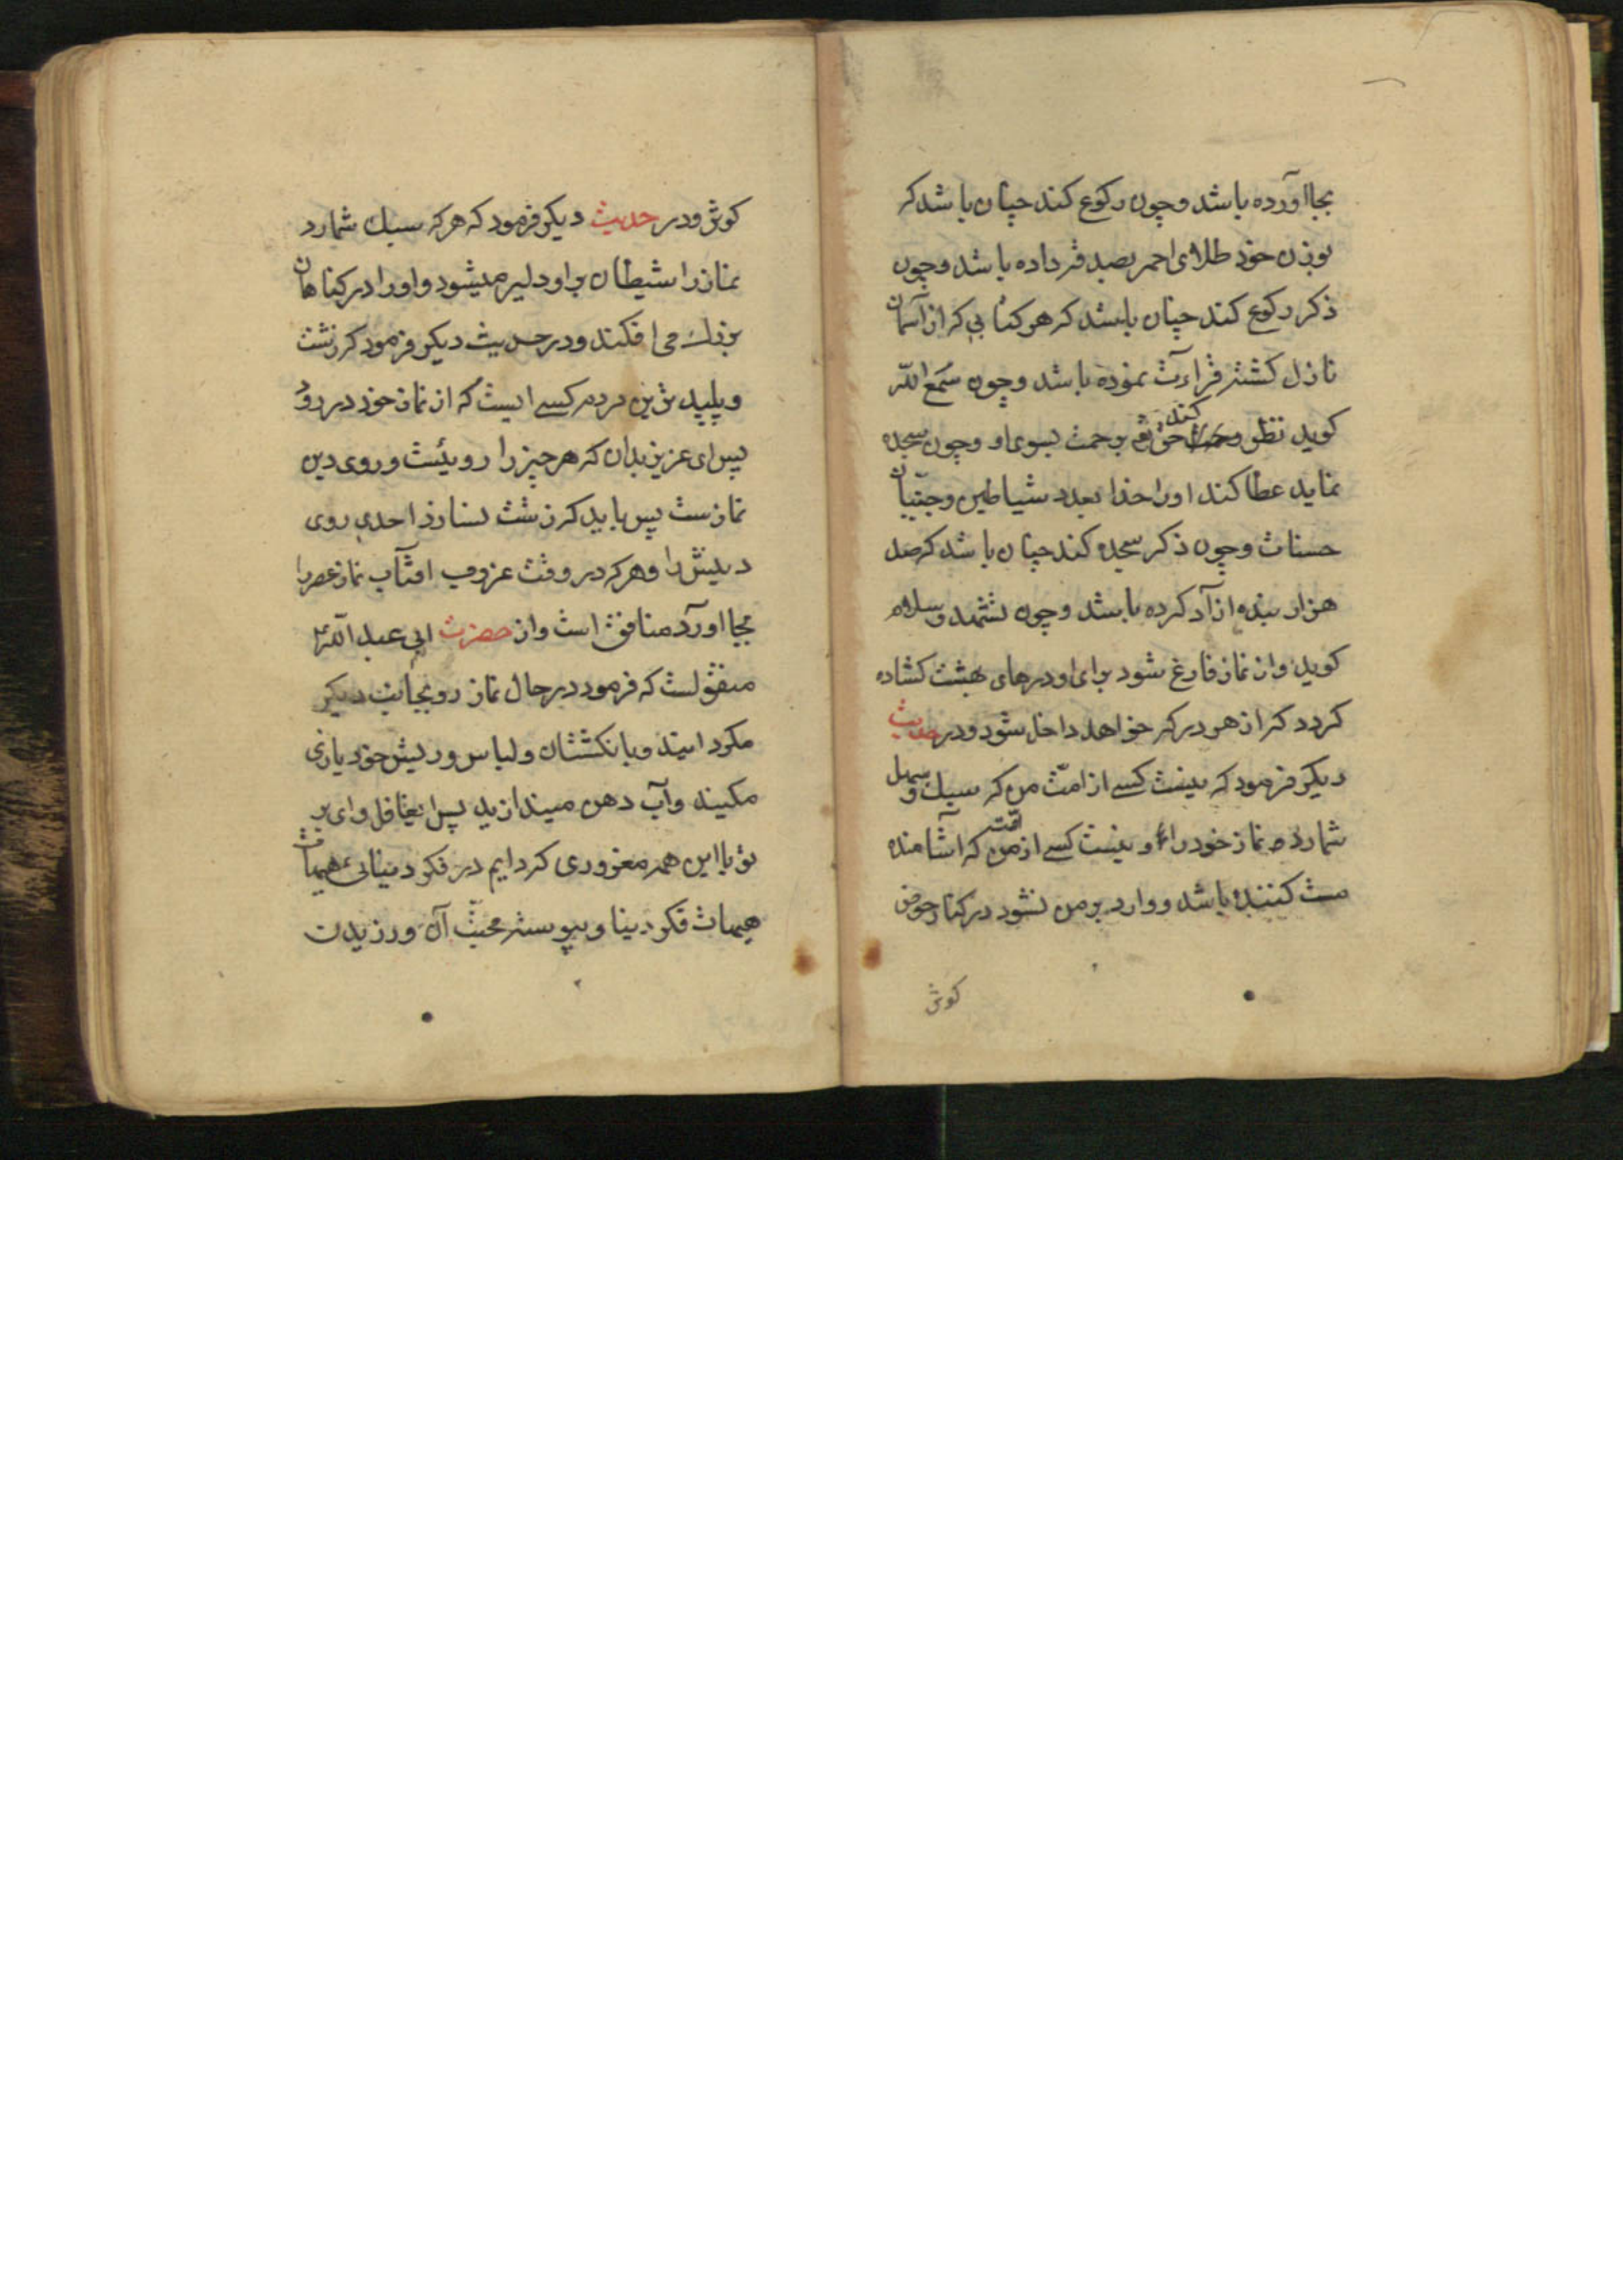 بجا اورده باشد و چون رکوع کند چنان باشد که
بوزن خود طلای احمر بصدقه داده باشد و چون
ذکر رکوع کند چنان باشد که هر کتابی که از آسمان
نازل کشته قراءت نموده باشد و چون سمع الله
کوید نظر کند حق تع برحمت بسوی او و چون سجده
نماید عطا کند او را خدا بعدد شیاطین و جنّیان
حسنات و چون ذکر سجده کند چنان باشد که صد
هزار بنده ازآد کرده باشد و چون تشهد و سلام
کوید و از نماز فارغ شود برای او درهای بهشت کشاده
کردد که از هر در که خواهد داخل شود و در حدیث
دیکر فرمود که نیست کسی از امّت من که سبک و سهل
شمارد نماز خود را و نیست کسی از امّت من که آشامنده
مست کننده باشد و وارد بر من نشود در کنار حوض
کوثر
کوثر و در حدیث دیکر فرمود که هر که سبک شمارد
نماز را شیطان بر او دلیر میشود و او را در کناهان
بزرک می افکند و در حدیث دیکر فرمود که زشت
و پلید ترین مردم کسی ایست که از نماز خود دزدد
پس ای عزیز بدان که هر چیز را روئیست و روی دین
نمازست پس باید که زشت نسازد احدی روی
دینش را و هر که در وقت غروب افتآب نماز عصر را
بجا اورد منافق است و از حضرت ابی عبد الله ع
منقولست که فرمود در حال نماز رو بجانب دیکر
مکردانید و بانکشتان و لباس و ریش خود بازی
مکنید و آب دهن میندازید پس ایغافل وای بر
تو با این همه مغروری کردایم در فکر دنیائی هیهات
هیهات فکر دنیا و پیوسته محبّت آن ورزیدن